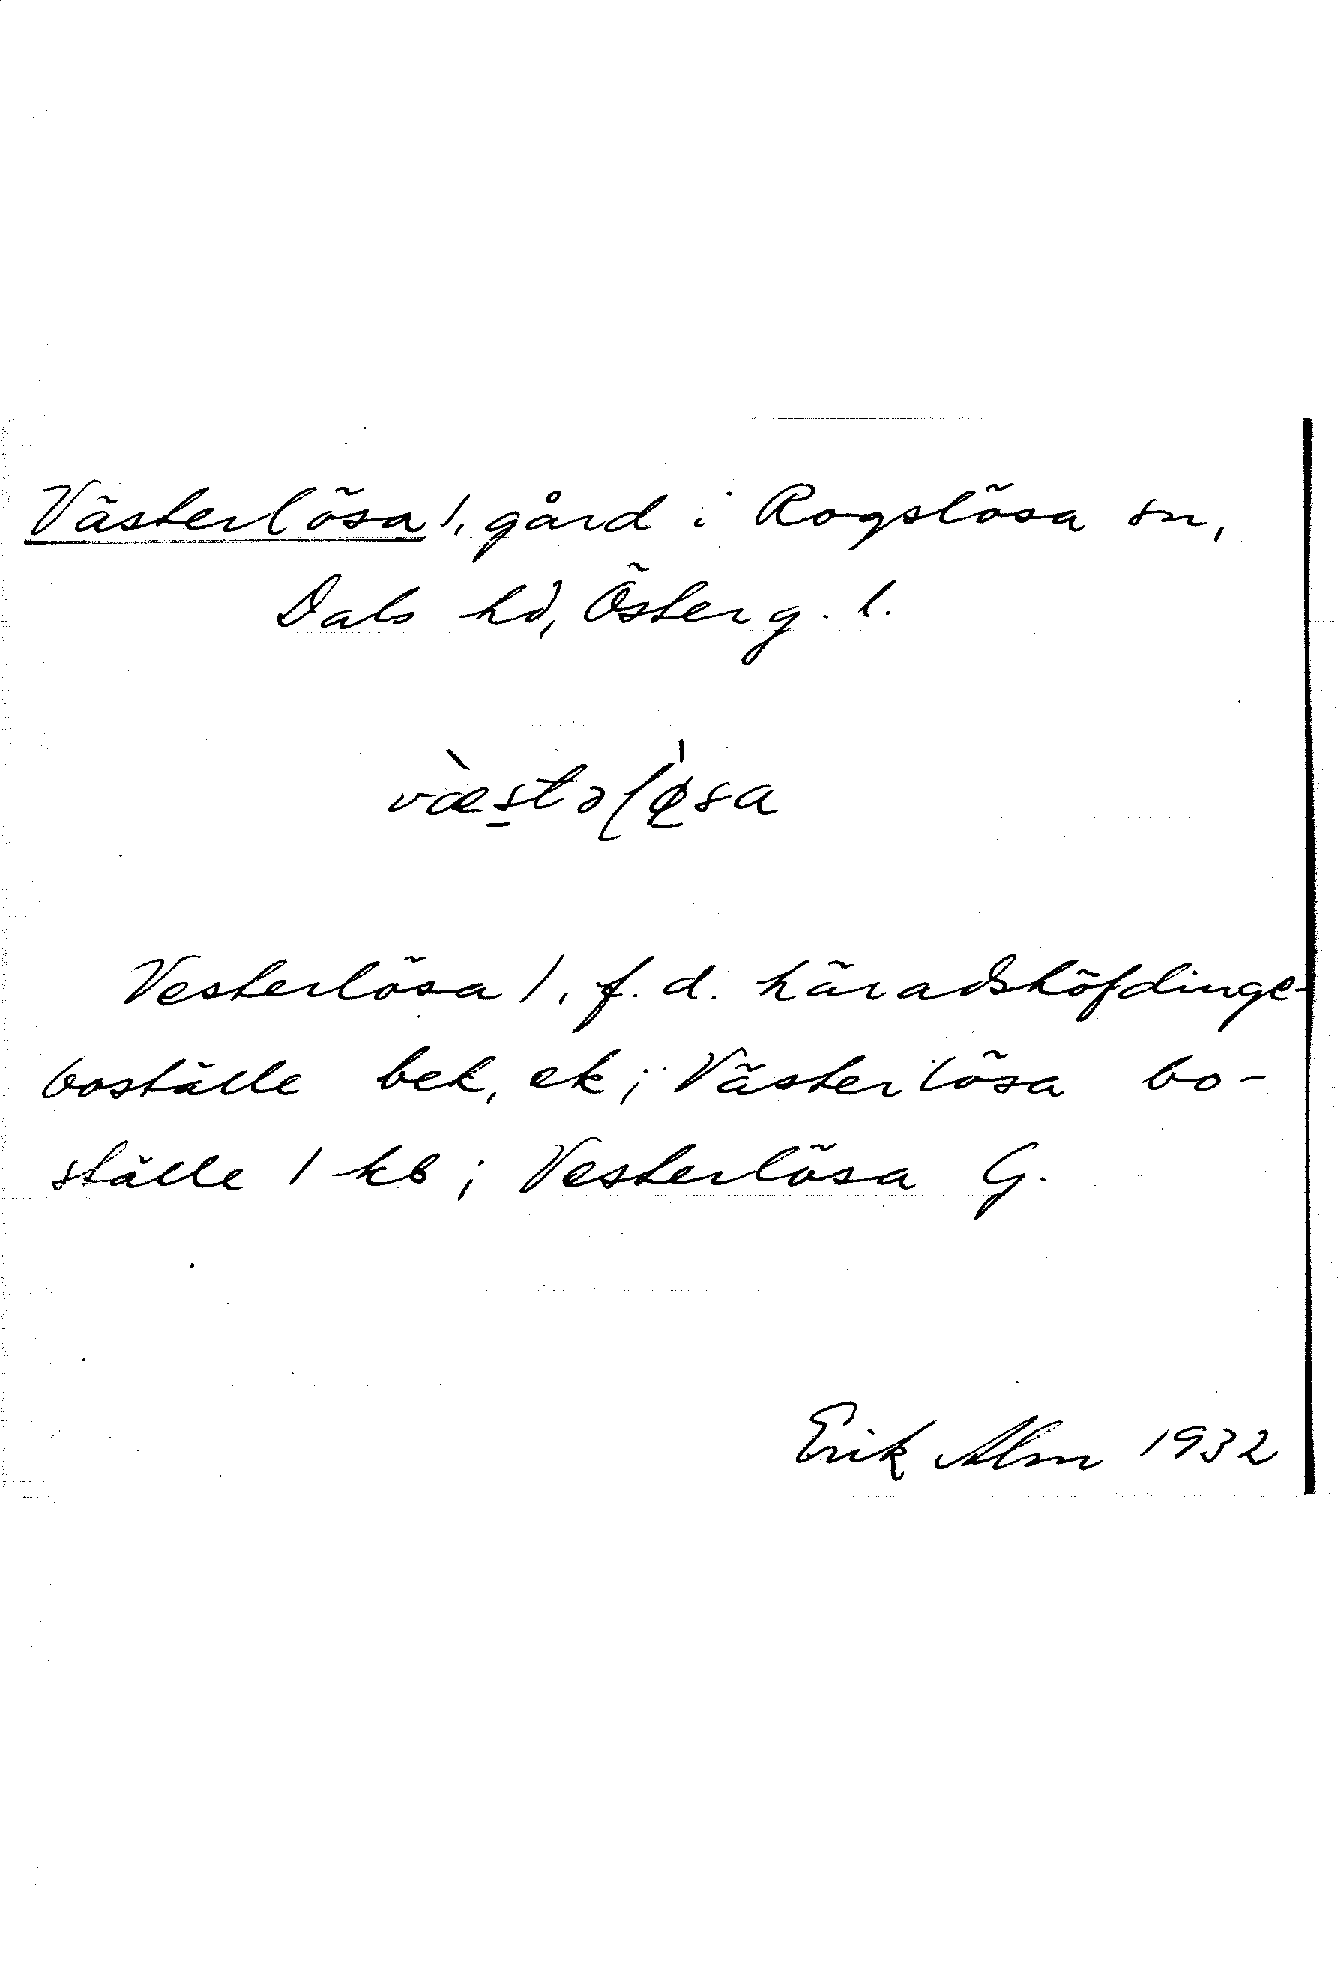 Västerlösa 1, gård i Rogslösa sn,
Dals hd, Österg. l.
væ̀stəlø̀sa
Vesterlösa 1, f. d. häradshöfdinge-
boställe bek, ek; Västerlösa bo-
ställe 1 kb; Vesterlösa G.
Erik Alm 1932